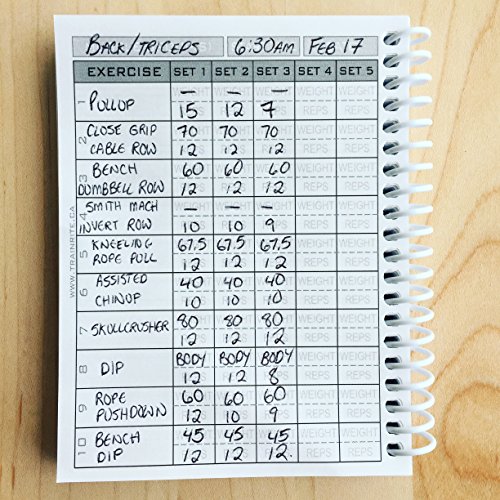 BACK/TRICEPS 6:30AM FEB 17
EXERCISE SET 1 SET 2 SET 3 SET 4 SET 5
1 PULLUP — — — WEIGHT WEIGHT
15 12 7 REPS REPS
2 CLOSE GRIP 70 70 70 WEIGHT WEIGHT
CABLE ROW 12 12 12 REPS REPS
3 BENCH 60 60 60 WEIGHT WEIGHT
DUMBBELL ROW 12 12 12 REPS REPS
4 SMITH MACH — — — WEIGHT WEIGHT
INVERT ROW 10 10 9 REPS REPS
5 KNEELING 67.5 67.5 67.5 WEIGHT WEIGHT
ROPE PULL 12 12 12 REPS REPS
6 ASSISTED 40 40 40 WEIGHT WEIGHT
CHINUP 10 10 10 REPS REPS
7 SKULLCRUSHER 80 80 80 WEIGHT WEIGHT
12 12 12 REPS REPS
8 DIP BODY BODY BODY WEIGHT WEIGHT
12 12 8 REPS REPS
9 ROPE 60 60 60 WEIGHT WEIGHT
PUSHDOWN 12 10 9 REPS REPS
10 BENCH 45 45 45 WEIGHT WEIGHT
DIP 12 12 12 REPS REPS
WWW.TRAINRITE.CA